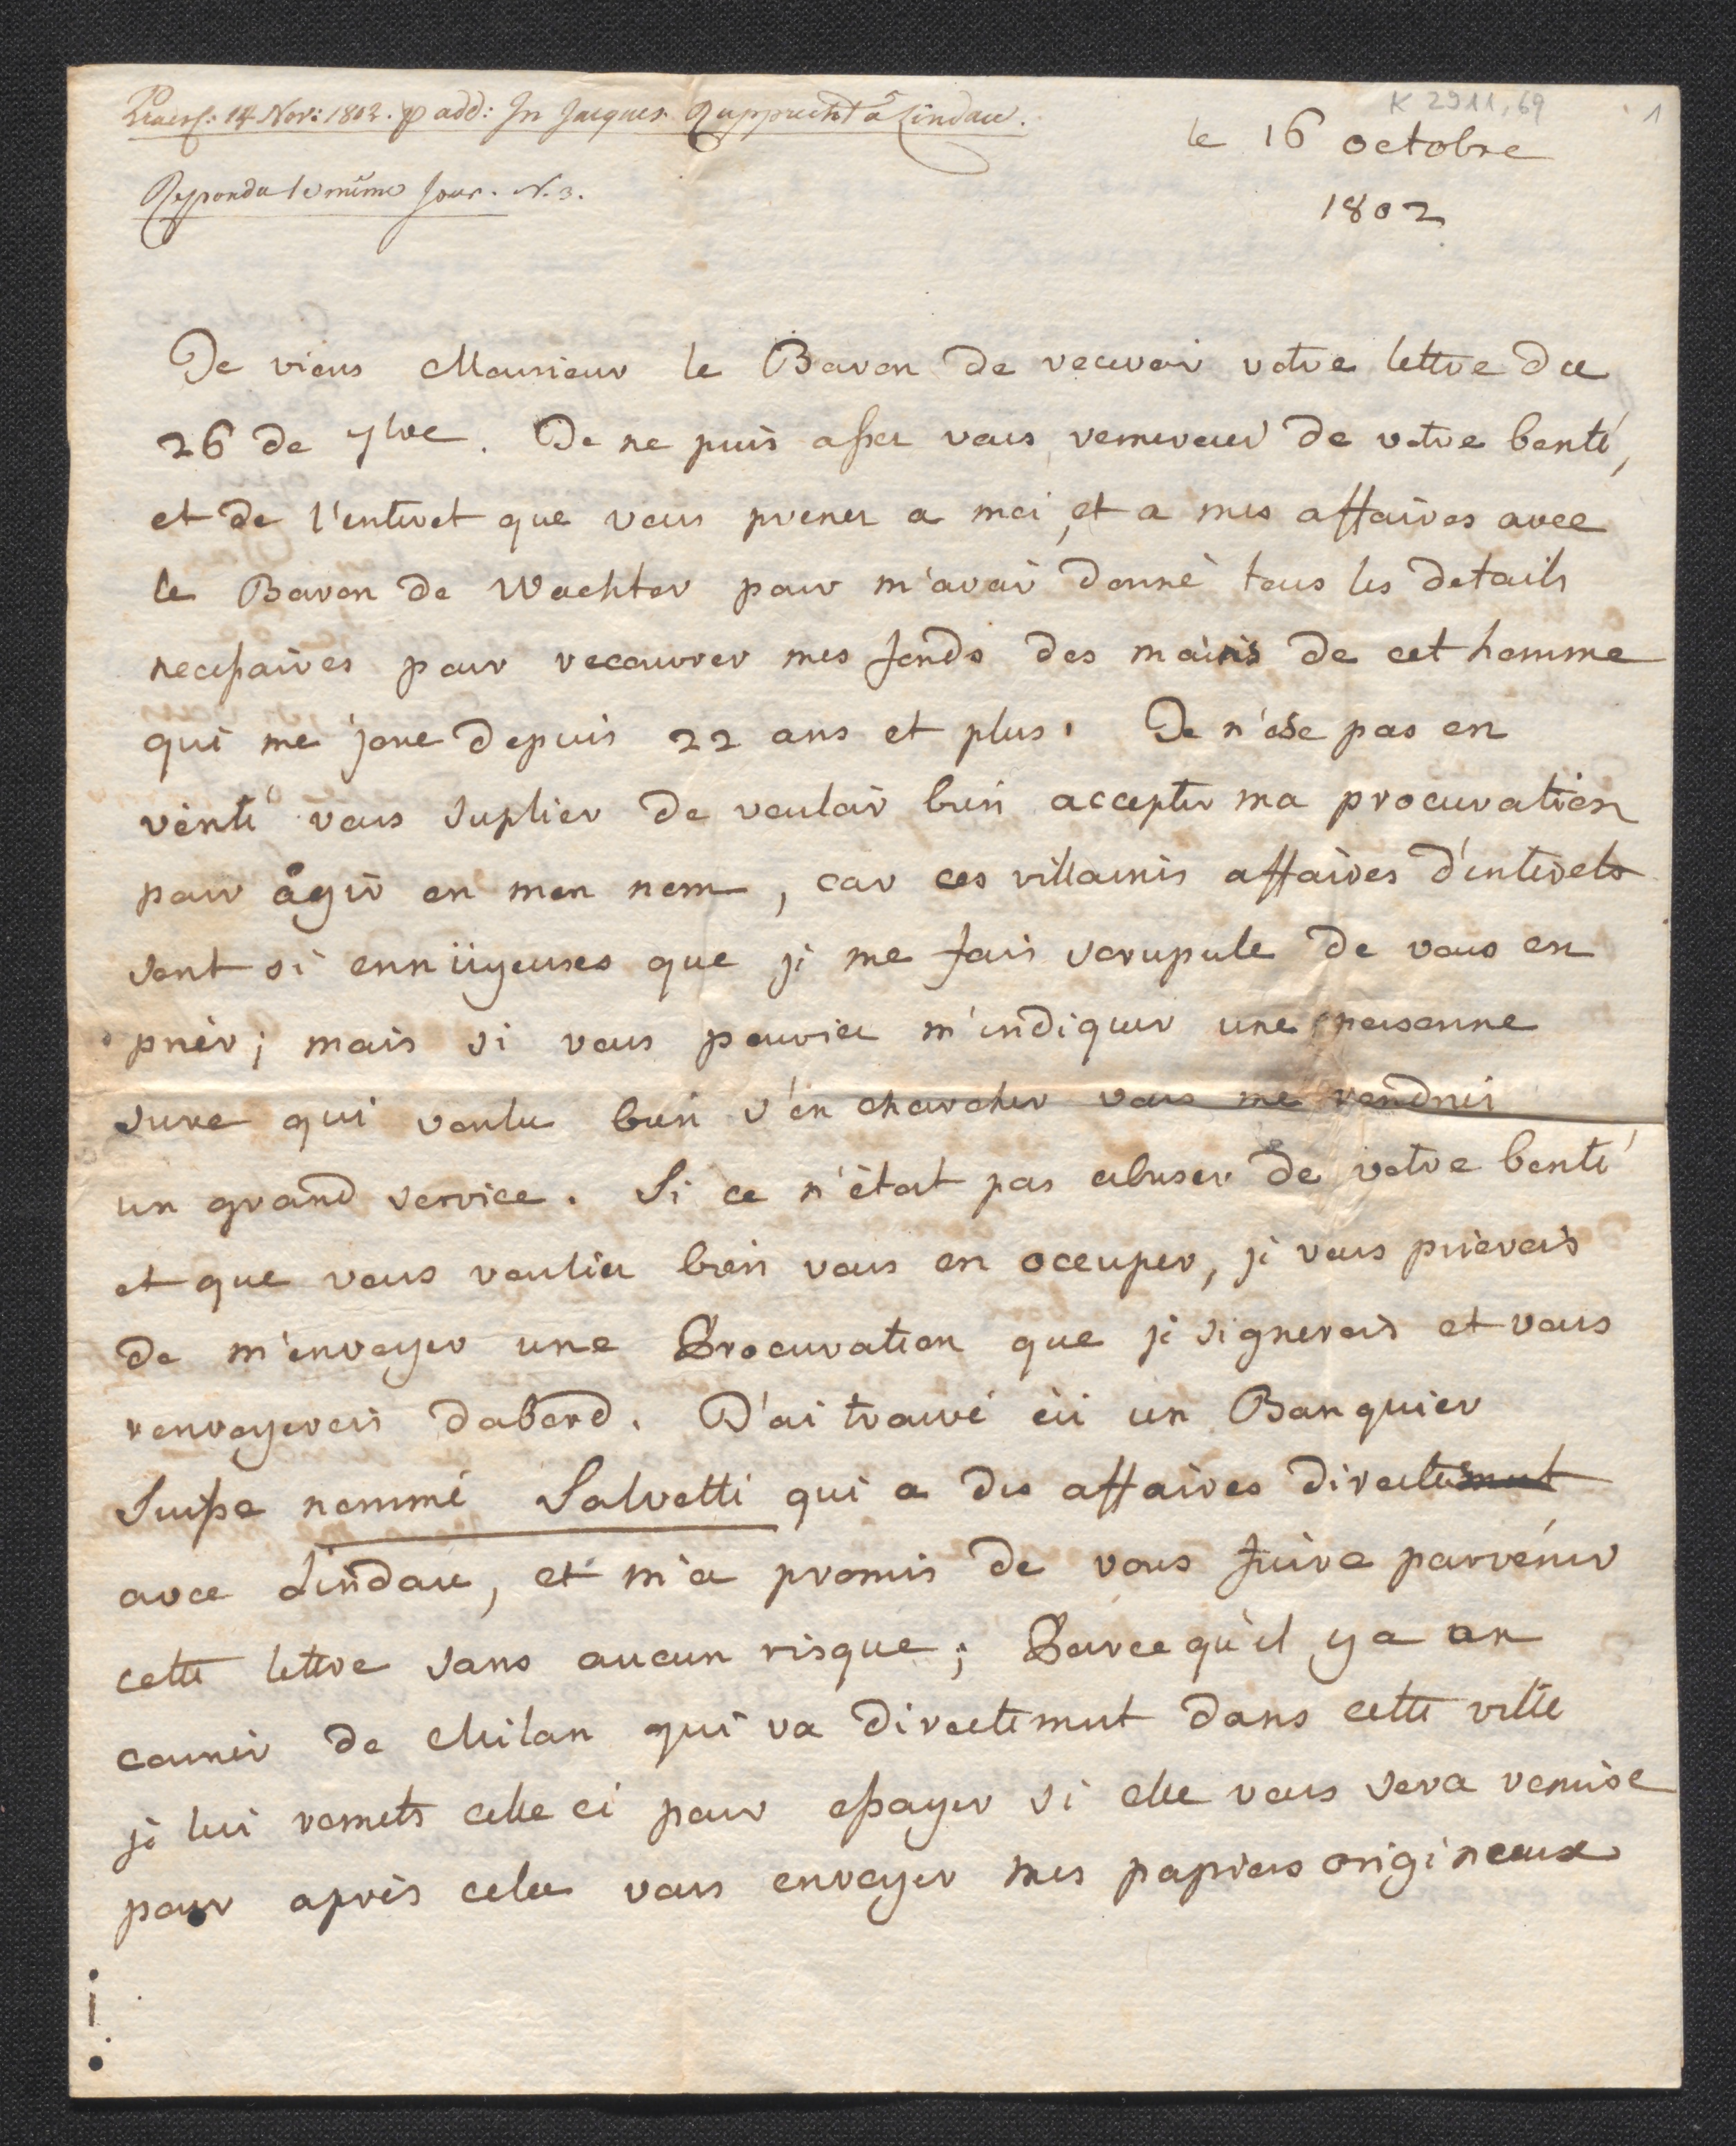 Praes: 14 Nov: 1802. p add: Jn Jacques Rupprecht a Lindau.
Repondu le même Jour. N. 3.
K 2911,69
1
le 16 octobre
1802
Je viens Monsieur le Baron de recevoir votre lettre du
26 de 7bre. Je ne puis assez vous remercier de votre bonté,
et de l'enteret que vous prenez a moi, et a mes affaires avec
le Baron de Wachter pour m'avoir donné tous les details
necessaires pour recouvrer mes fonds des mains de cet homme
qui me joue depuis 22 ans et plus. Je n'ose pas en
vérité vous suplier de vouloir bien accepter ma procuration
pour âgir en mon nom, car ces villaines affaires d'enterets
sont si ennüyeuses que je me fais scrupule de vous en
prièr; mais si vous pouviez m'indiquer une personne
sure qui voulu bien s'en charcher vous me rendriés
un grand service. Si ce n'étoit pas abuser de votre bonté
et que vous vouliez bien vous en occuper, je vous prierois
de m'envoyer une Procuration que je signerois et vous
renvoyerois dabord. J'ai trouvé ici un Banquier
Suisse nommé Salvetti qui a des affaires directement
avec Lindau, et m'a promis de vous faire parvenir
cette lettre sans aucun risque; Parce qu'il y a un
courier de Milan qui va directement dans cette ville
je lui remets celle ci pour essayer si elle vous sera remise
pour après cela vous envoyer mes papiers originaux